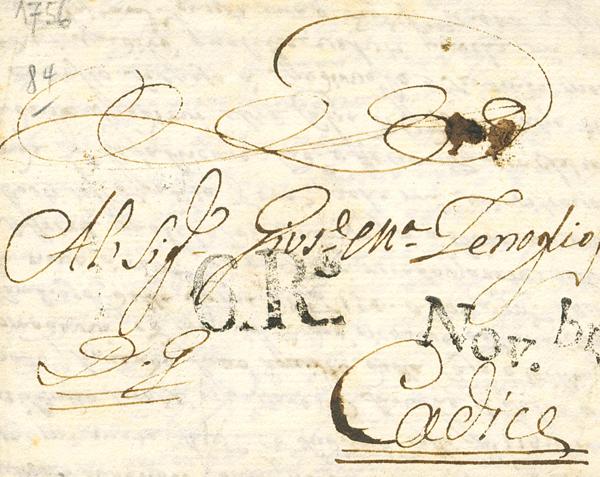 1756
84
Al Sig.r Gius.e M.a Zenoglio
6.Rs
Nov. bg
D. G
Cadice